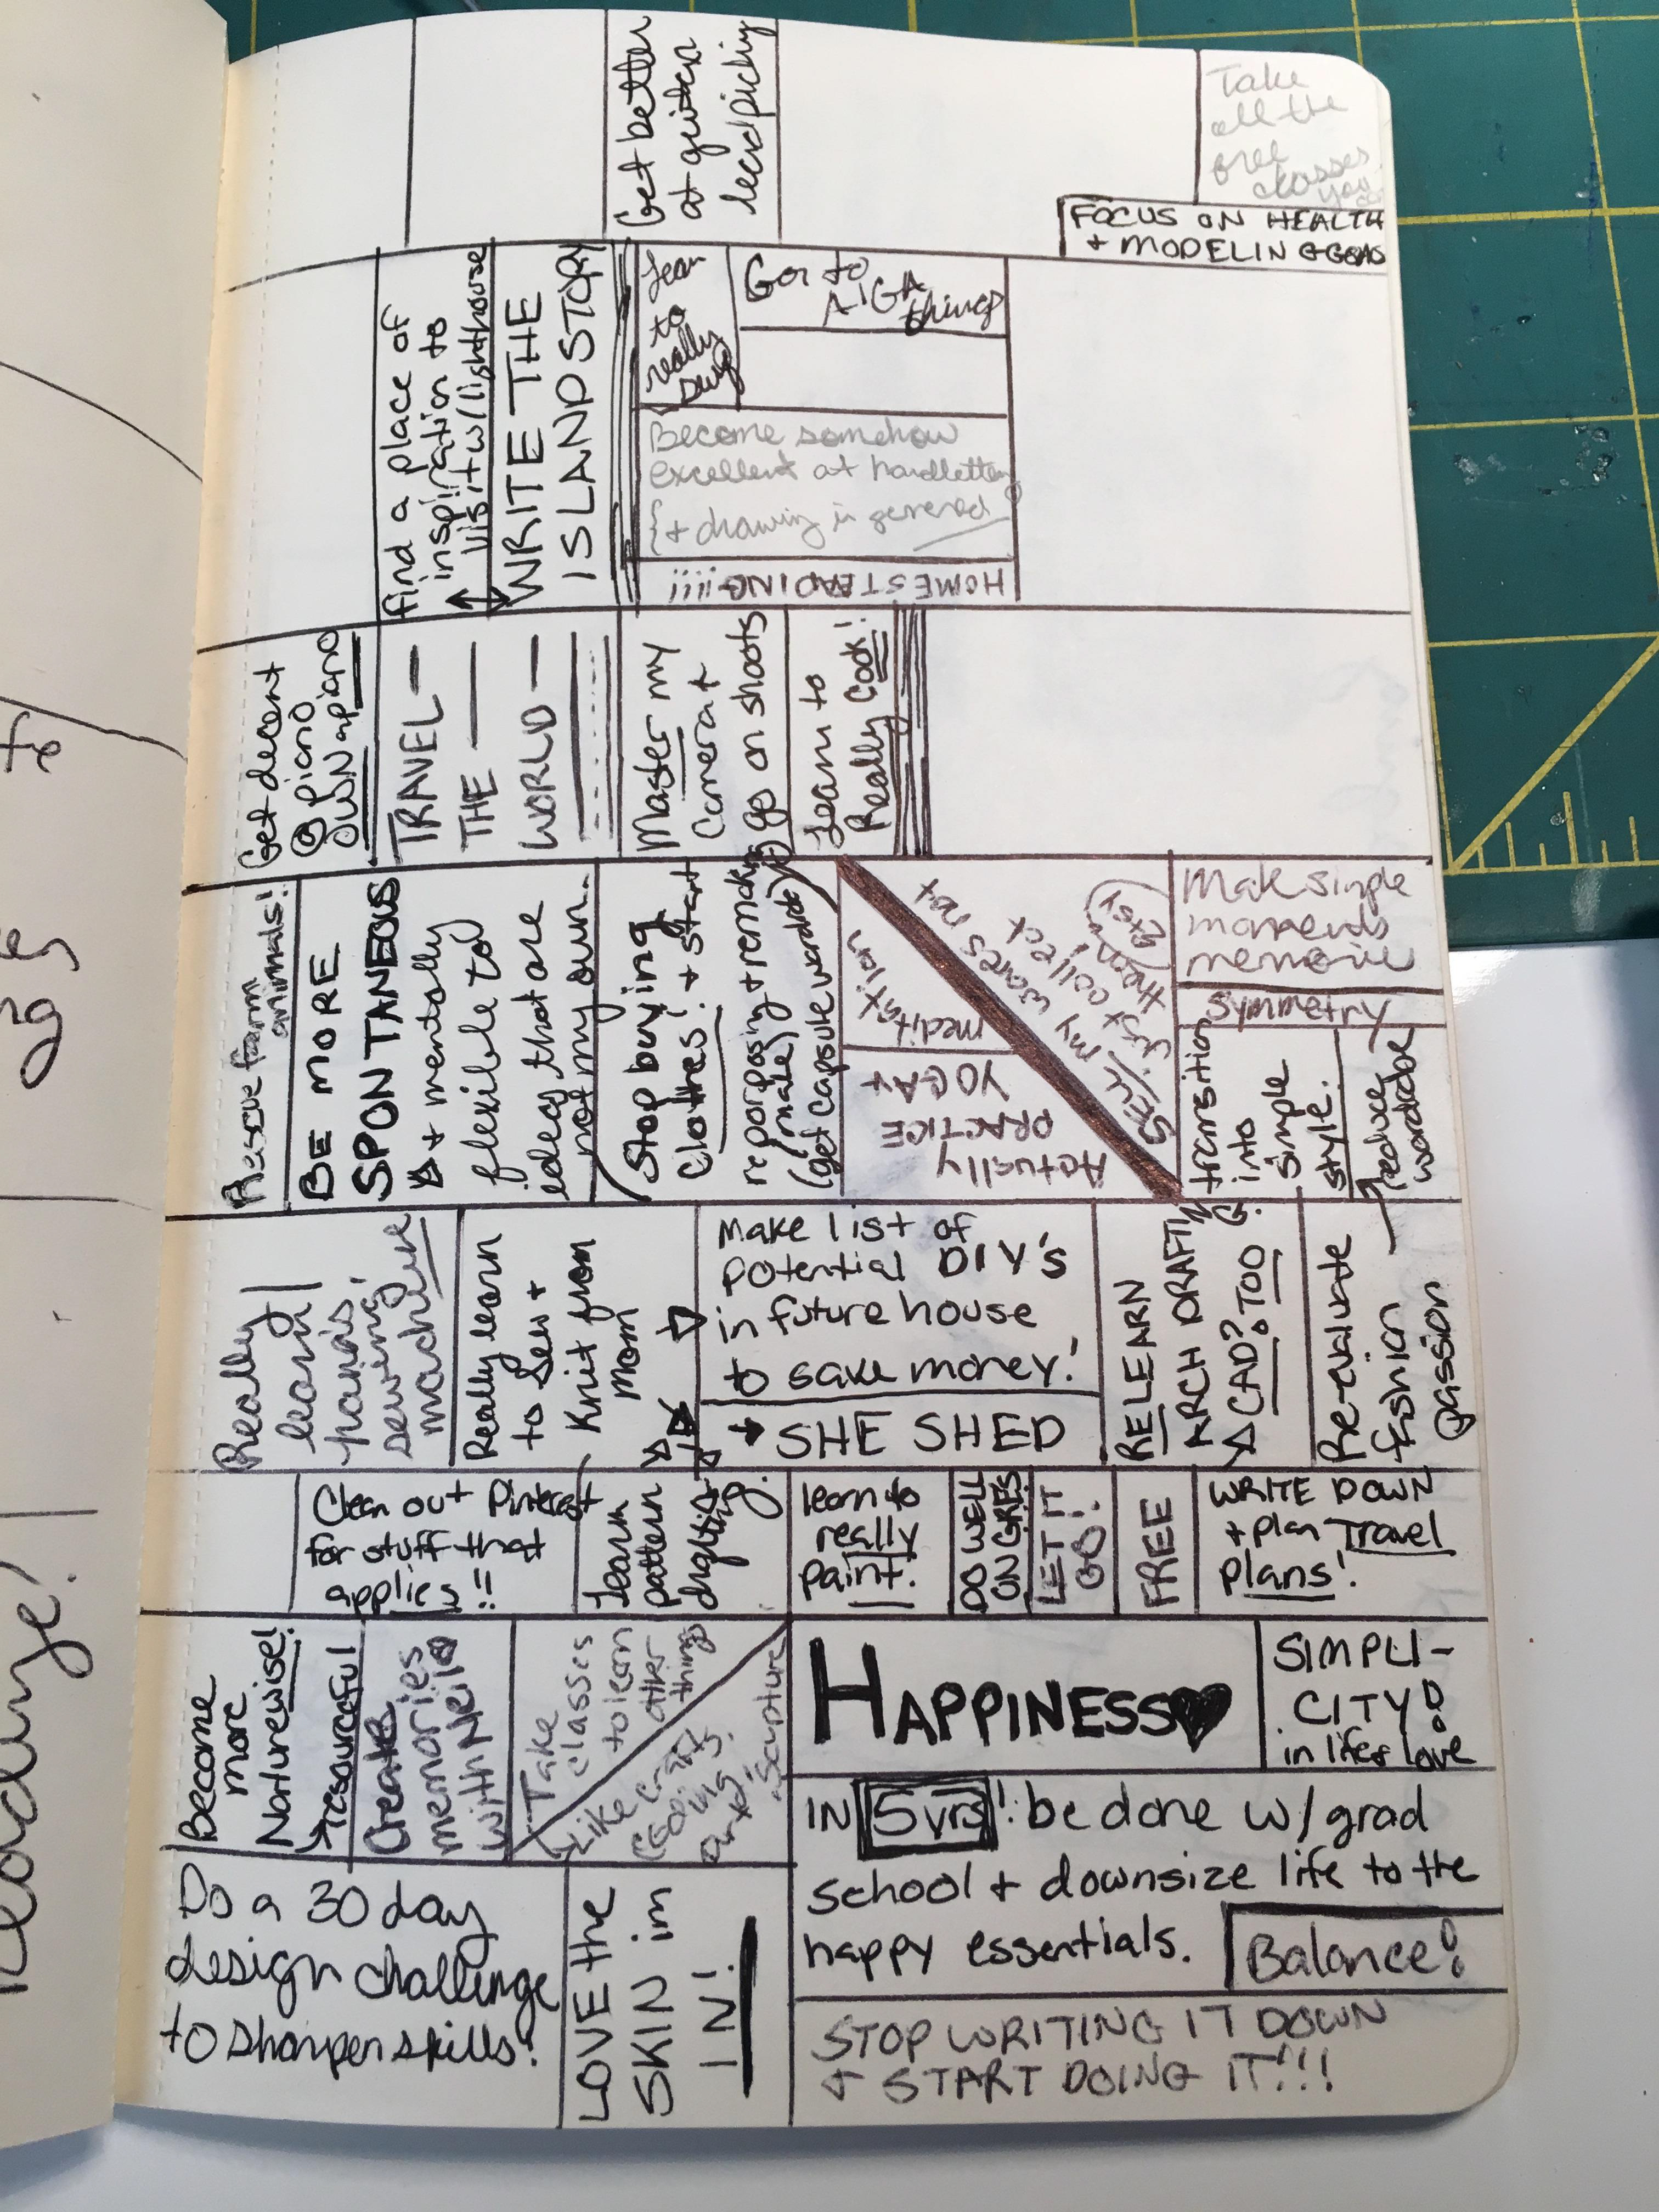 Get better
at guitar
Take
all the
free
classes
you
FOCUS ON HEALTH
+ MODELING GOALS
find a place of
inspiration to
visit w/ lighthouse
WRITE THE
ISLAND STORY
Learn
to
really
sing
Go to
AIGA
things
Become somehow
excellent at handlettering
+ drawing in general
HOMESTEADING!!!!
Get decent
@ piano
OWN a piano
TRAVEL
THE
WORLD
Master my
camera +
go on shoots
Learn to
Really Cook!
Rescue farm
animals!
BE MORE
SPONTANEOUS
+ mentally
flexible to
ideas that are
not my own.
Stop buying
Clothes! + start
reporposing + remaking
(male)
(get capsule wardrobe)
meditation
Actually
PRACTICE
YOGA +
SELL my wares not
just collect
them!
Etsy
Make simple
moments
memorie
Symmetry
transition
into
simple
style.
reduce
wardrobe
Really
learn
sewing
machine
Really learn
to Sew +
Knit from
mom
Make list of
potential DIY's
in future house
to save money!
SHE SHED
RELEARN
ARCH DRAFTING.
CAD? TOO
Re-evaluate
fashion
passion
Clean out Pinterest
for stuff that
applies!!
Learn
pattern
drafting.
learn to
really
paint!
DO WELL
ON GRES
LET IT
GO!
FREE
WRITE DOWN
+ plan Travel
plans!
Become
more
Naturewise!
resourceful
Create
memories
with Neil
Take
classes
to learn
other
things
Like craft
sculpture
HAPPINESS
SIMPLI-
CITY!
in life & love
IN 5 yrs! be done w/ grad
school + downsize life to the
happy essentials.
Balance!
Do a 30 day
design challenge
to sharpen skills!
LOVE the
SKIN im
IN!
STOP WRITING IT DOWN
+ START DOING IT!!!